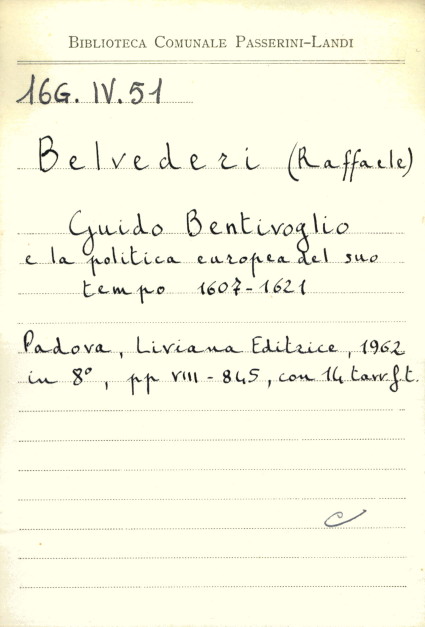 BIBLIOTECA COMUNALE PASSERINI-LANDI
16G. IV. 51
Belvederi (Raffaele)
Guido Bentivoglio
e la politica europea del suo
tempo 1607-1621
Padova, Liviana Editrice, 1962
in 8°, pp VIII - 845, con 14 tavv. f.t.
C